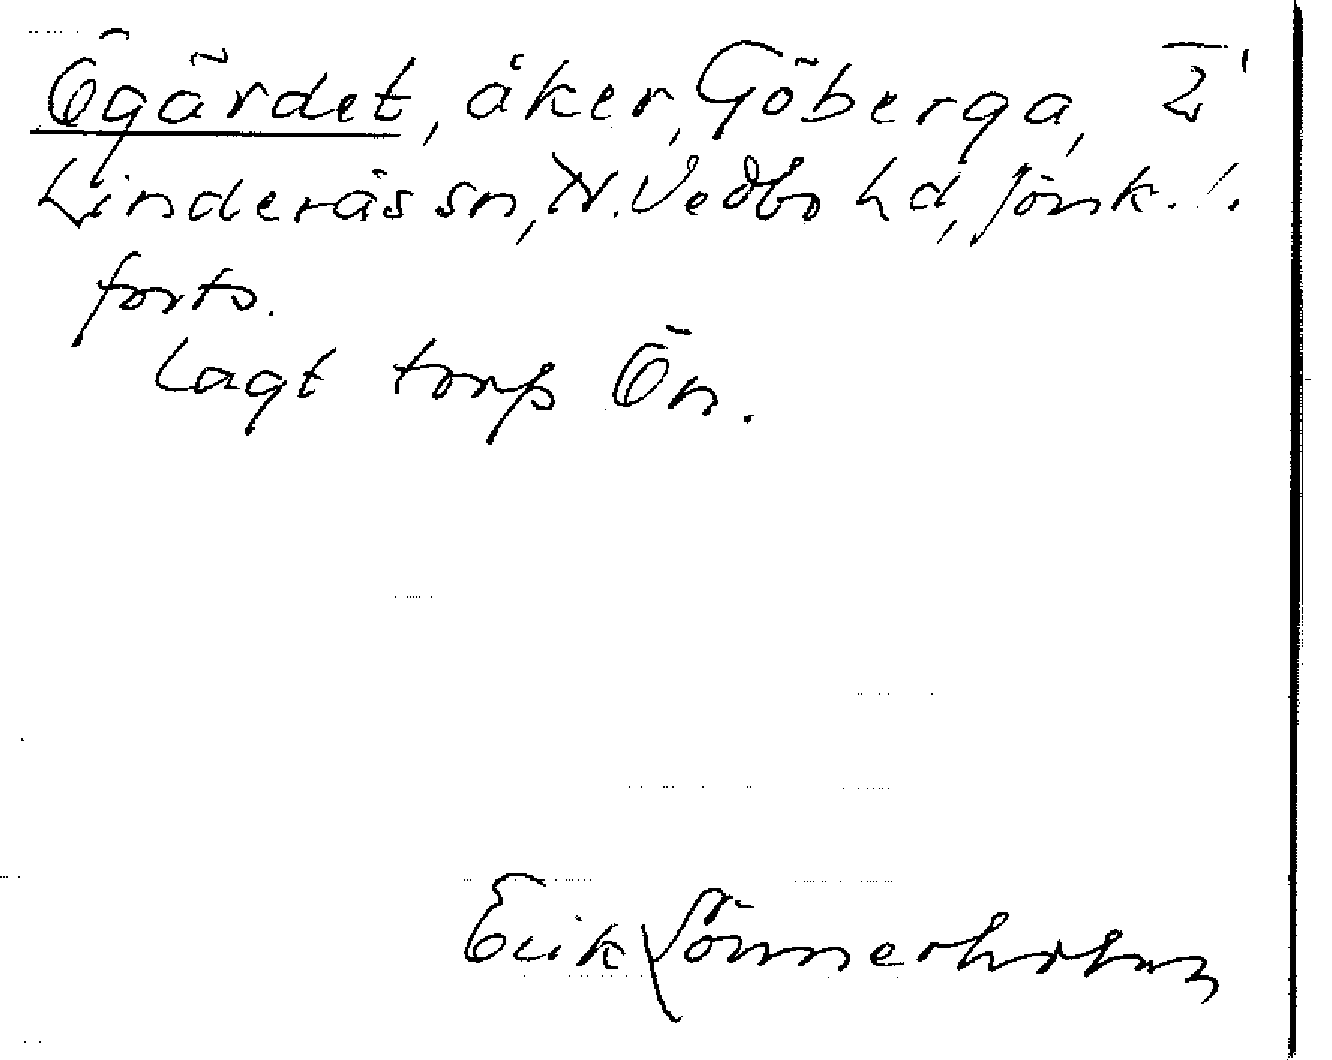 Ögärdet, åker, Göberga, 2
Linderås sn, N. Vedbo hd, Jönk. l.
forts.
lagt torp Ön.
Erik Sönnerholm